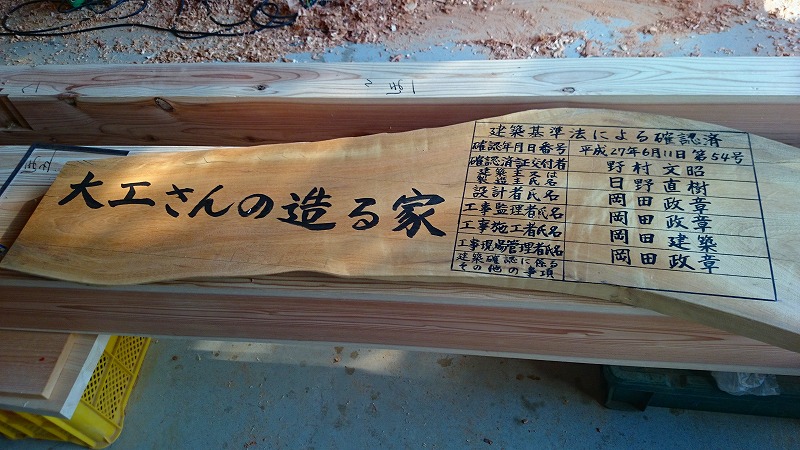 大工さんの造る家
建築基準法による確認済
確認年月日番号 平成27年6月11日第54号
確認済証交付者 野村文昭
建築主又は
築造主氏名 日野直樹
設計者氏名 岡田政章
工事監理者氏名 岡田政章
工事施工者氏名 岡田建築
工事現場管理者氏名 岡田政章
建築確認に係る
その他の事項